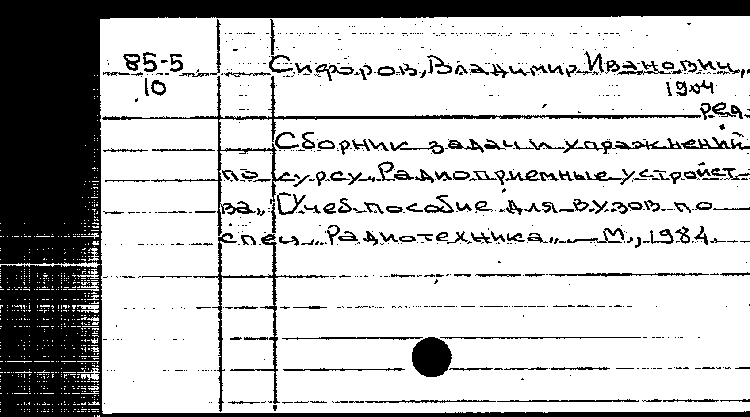 85-5 Сифоров, Владимир Иванович,
10 1904
ред.
Сборник задач и упражнений
по курсу „Радиоприемные устройст-
ва„ [Учеб. пособие для вузов по
спец. „Радиотехника„ — М., 1984.